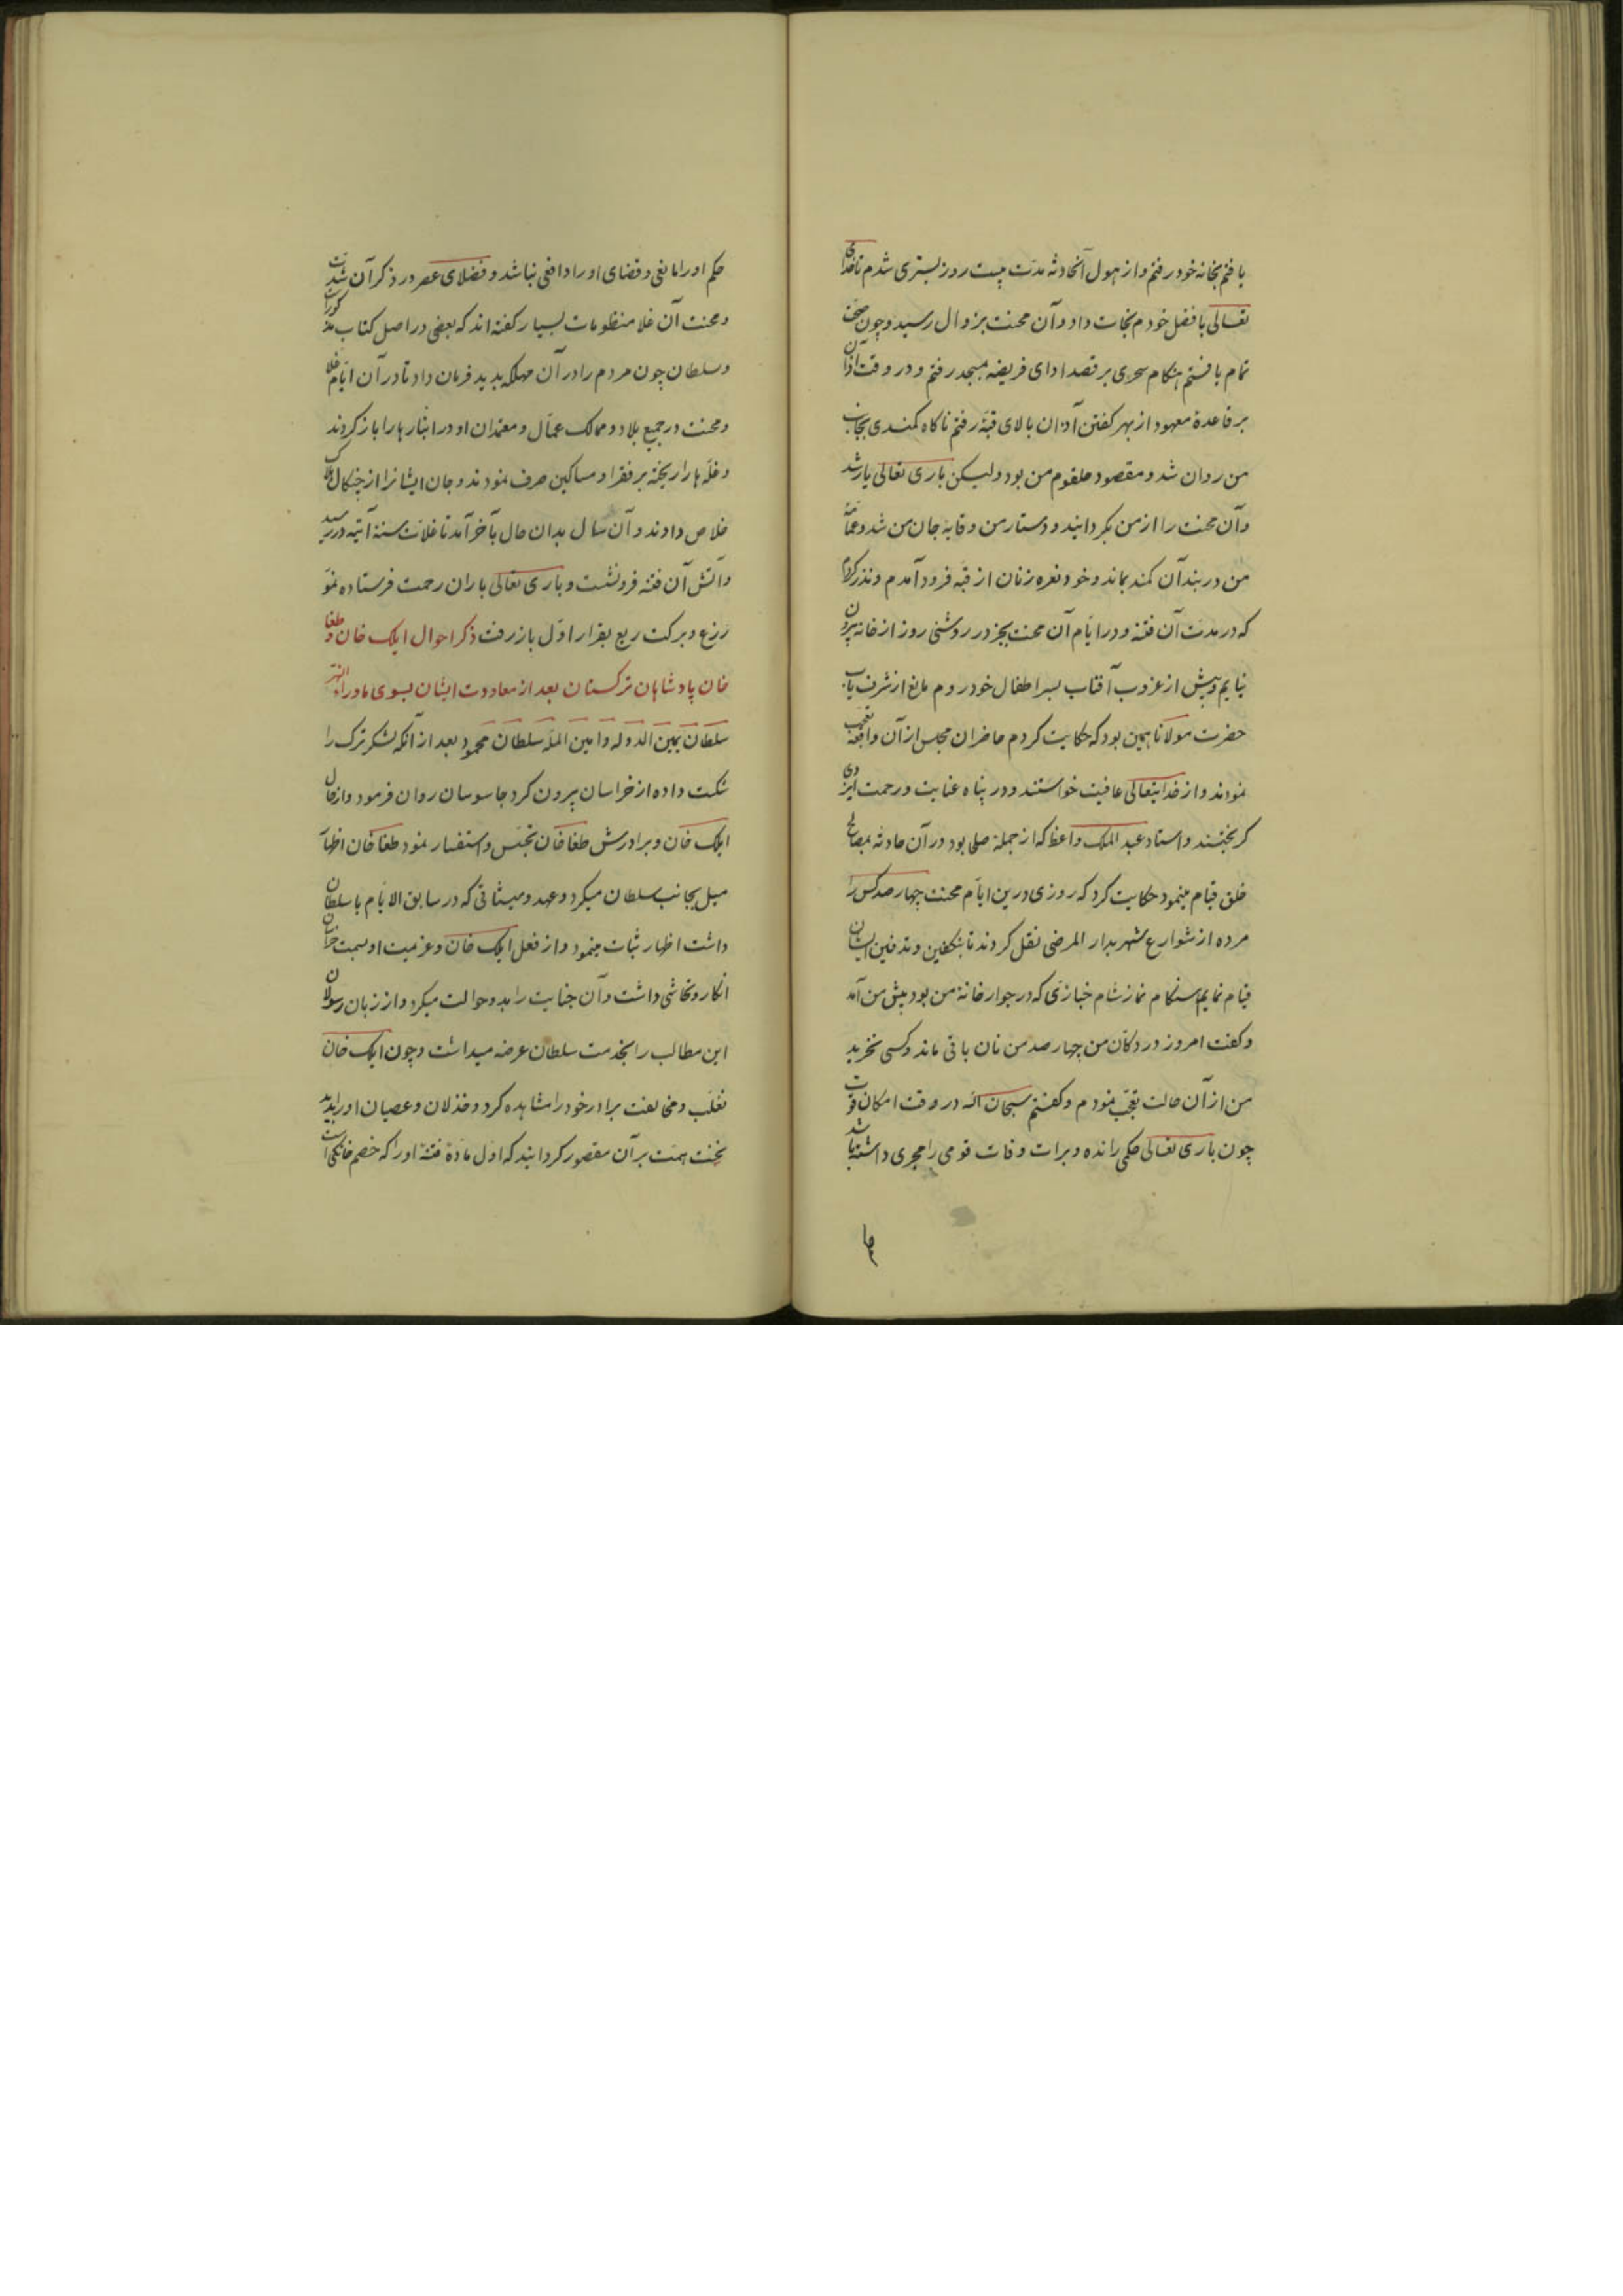 یافتم بخانه خود رفتم و از هول آنحادثه مدت بیست روز بستری شدم تا خدای
تعالی بافضل خودم نجات داد و آن محنت بزوال رسید و چون صحت
تمام یافتم هنگام سحری بر قصد ادای فریضه بمسجد رفتم و در وقت اذان
بر قاعدهٔ معهود از بهر گفتن آذان بالای قبّه رفتم ناکاه کمندی بجانب
من روان شد و مقصود حلقوم من بود ولیکن باری تعالی یار شد
و آن محنت را از من بکردانید و دستار من وقایه جان من شد و عمامه
من در بند آن کمند بماند و خود نعره زنان از قبّه فرود آمدم و نذر کردم
که در مدت آن فتنه و در ایام آن محنت بجز در روشنی روز از خانه بیرون
نیایم و پیش از غروب آفتاب بسر اطفال خود روم مانع از شرف یاب
حضرت مولانا همین بود که حکایت کردم حاضران مجلس از آن واقعه تعجب
نمودند و از خدایتعالی عافیت خواستند و در پناه عنایت و رحمت ایزدی
کریختند و استاد عبد الملک واعظ که از جمله صلحی بود در آن حادثه بمصالح
خلق قیام مینمود حکایت کرد که روزی درین ایام محنت چهار صد کس را
مرده از شوارع شهر بدار المرضی نقل کردند تا بتکفین و تدفین ایشان
قیام نمایم هنگام نماز شام خبازی که در جوار خانه من بود پیش من آمد
و کفت امروز در دکان من چهار صد من نان باقی ماند و کسی نخرید
من از آن حالت تعجب نمودم و کفتم سبحان الله در وقت امکان قوت
چون باری تعالی حکمی رانده و برات وفات قومی را مجری داشته باشد
حکم او را مانعی و قضای او را دافعی نباشد و فضلای عصر در ذکر آن شدت
و محنت آن غلا منظومات بسیار کفته اند که بعضی در اصل کتاب مذکورات
و سلطان چون مردم را در آن مهلکه بدید فرمان داد تا در آن ایام غلا
و محنت در جمیع بلاد و ممالک عمّال و معتمدان او در انبارها را باز کردند
و غلّه ها را ریخته بر فقرا و مساکین صرف نمودند و جان ایشانرا از چنکال مرک
خلاص دادند و آن سال بدان حال بآخر آمد تا غلات سنه آتیه در رسید
و آتش آن فتنه فرو نشت و باری تعالی باران رحمت فرستاده نمو
زرع و برکت ریع بقرار اوّل باز رفت ذکر احوال ایلک خان و طغا
خان پادشاهان ترکستان بعد از معاودت ایشان بسوی ماوراء النهر
سلطان یمین الدوله و امین الملّه سلطان محمود بعد از آنکه لشکر ترک را
شکت داده از خراسان بیرون کرد جاسوسان روان فرمود و از حال
ایلک خان و برادرش طغا خان تجسّس و استفسار نمود طغا خان اظهار
میل بجانب سلطان میکرد و عهد و میثاقی که در سابق الایام با سلطان
داشت اظهار ثبات مینمود و از فعل ایلک خان و عزیمت او بسمت خراسان
انکار و تحاشی داشت و آن جنایت را بدو حوالت میکرد و از زبان رسولان
این مطالب را بخدمت سلطان عرضه میداشت و چون ایلک خان
تغلّب و مخالفت برادر خود را مشاهده کرد و خذلان و عصیان او را بدید
نخنت همّت بر آن مقصور کردانید که اوّل مادّهٔ فتنهٔ او را که خصم خانکی است